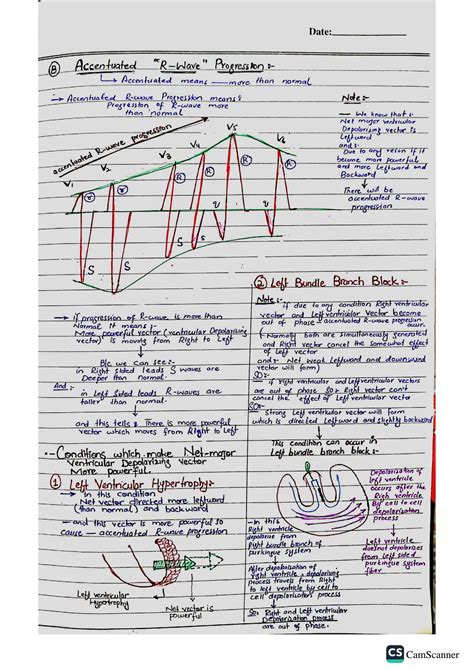 Date:
(8) Accentuated "R-Wave" Progression:-
Accentuated means more than normal
→ Accentuated R-wave Progression means:
Progression of R-wave more
than normal
accentuated R-wave progression
V1
V2
V3
V4
V5
V6
r
r
R
R
R
R
S
S
S
S
q
q
Note:-
We know that:-
Net major ventricular
Depolarising vector is
Leftward
and:-
Due to any reson if it
become more powerful
and more Leftward and
Backward
There will be
accentuated R-wave
progression
→ if progression of R-wave is more than
Normal It means:-
More powerful vector (ventricular Depolarizing
vector) is moving from Right to Left
B/c we can see:-
in Right sided Leads S waves are
Deeper than normal.
And:-
in Left sided Leads R-waves are
taller than normal.
and this tells :- There is more powerful
vector which moves from Right to Left
Conditions which make Net-major
Ventricular Depolarizing Vector
More powerful.
(1) Left Ventricular Hypertrophy:-
→ In this condition
Net vector directed more leftward
(than normal) and backward
→ and this vector is more powerful so
cause accentuated R-wave progression
Left ventricular
Hypertrophy
Net vector is
powerful
(2) Left Bundle Branch Block:-
Note:-
if due to any condition Right ventricular
vector and Left ventricular Vector become
out of phase → accentuated R-wave progression
occur.
(Normally both are simultaneously generated
and Right vector cancel the somewhat effect
of Left vector
and:- Net weak Leftward and downward
vector will form)
SO:-
if Right ventricular and Left ventricular vectors
are out of phase so Right vector can't
cancel the effect of Left ventricular vector
SO:-
Strong Left ventricular vector will form
which is directed Leftward and slightly backward
This condition can occur in
Left bundle branch block:-
Depolarization of
left ventricle
occurs after the
Right ventricle
By cell to cell
depolarization
process
Left ventricle
doesnot depolarizes
from Left sided
purkingue system
fiber
→ In this
Right ventricle
depolarize from
Right bundle branch of
purkingue system
After depolarization of
right ventricle, depolarizing
process travels from Right
to left ventricle by cell to
cell depolarization process
SO:- Right and Left ventricular
Depolarization process
are out of phase.
CS CamScanner